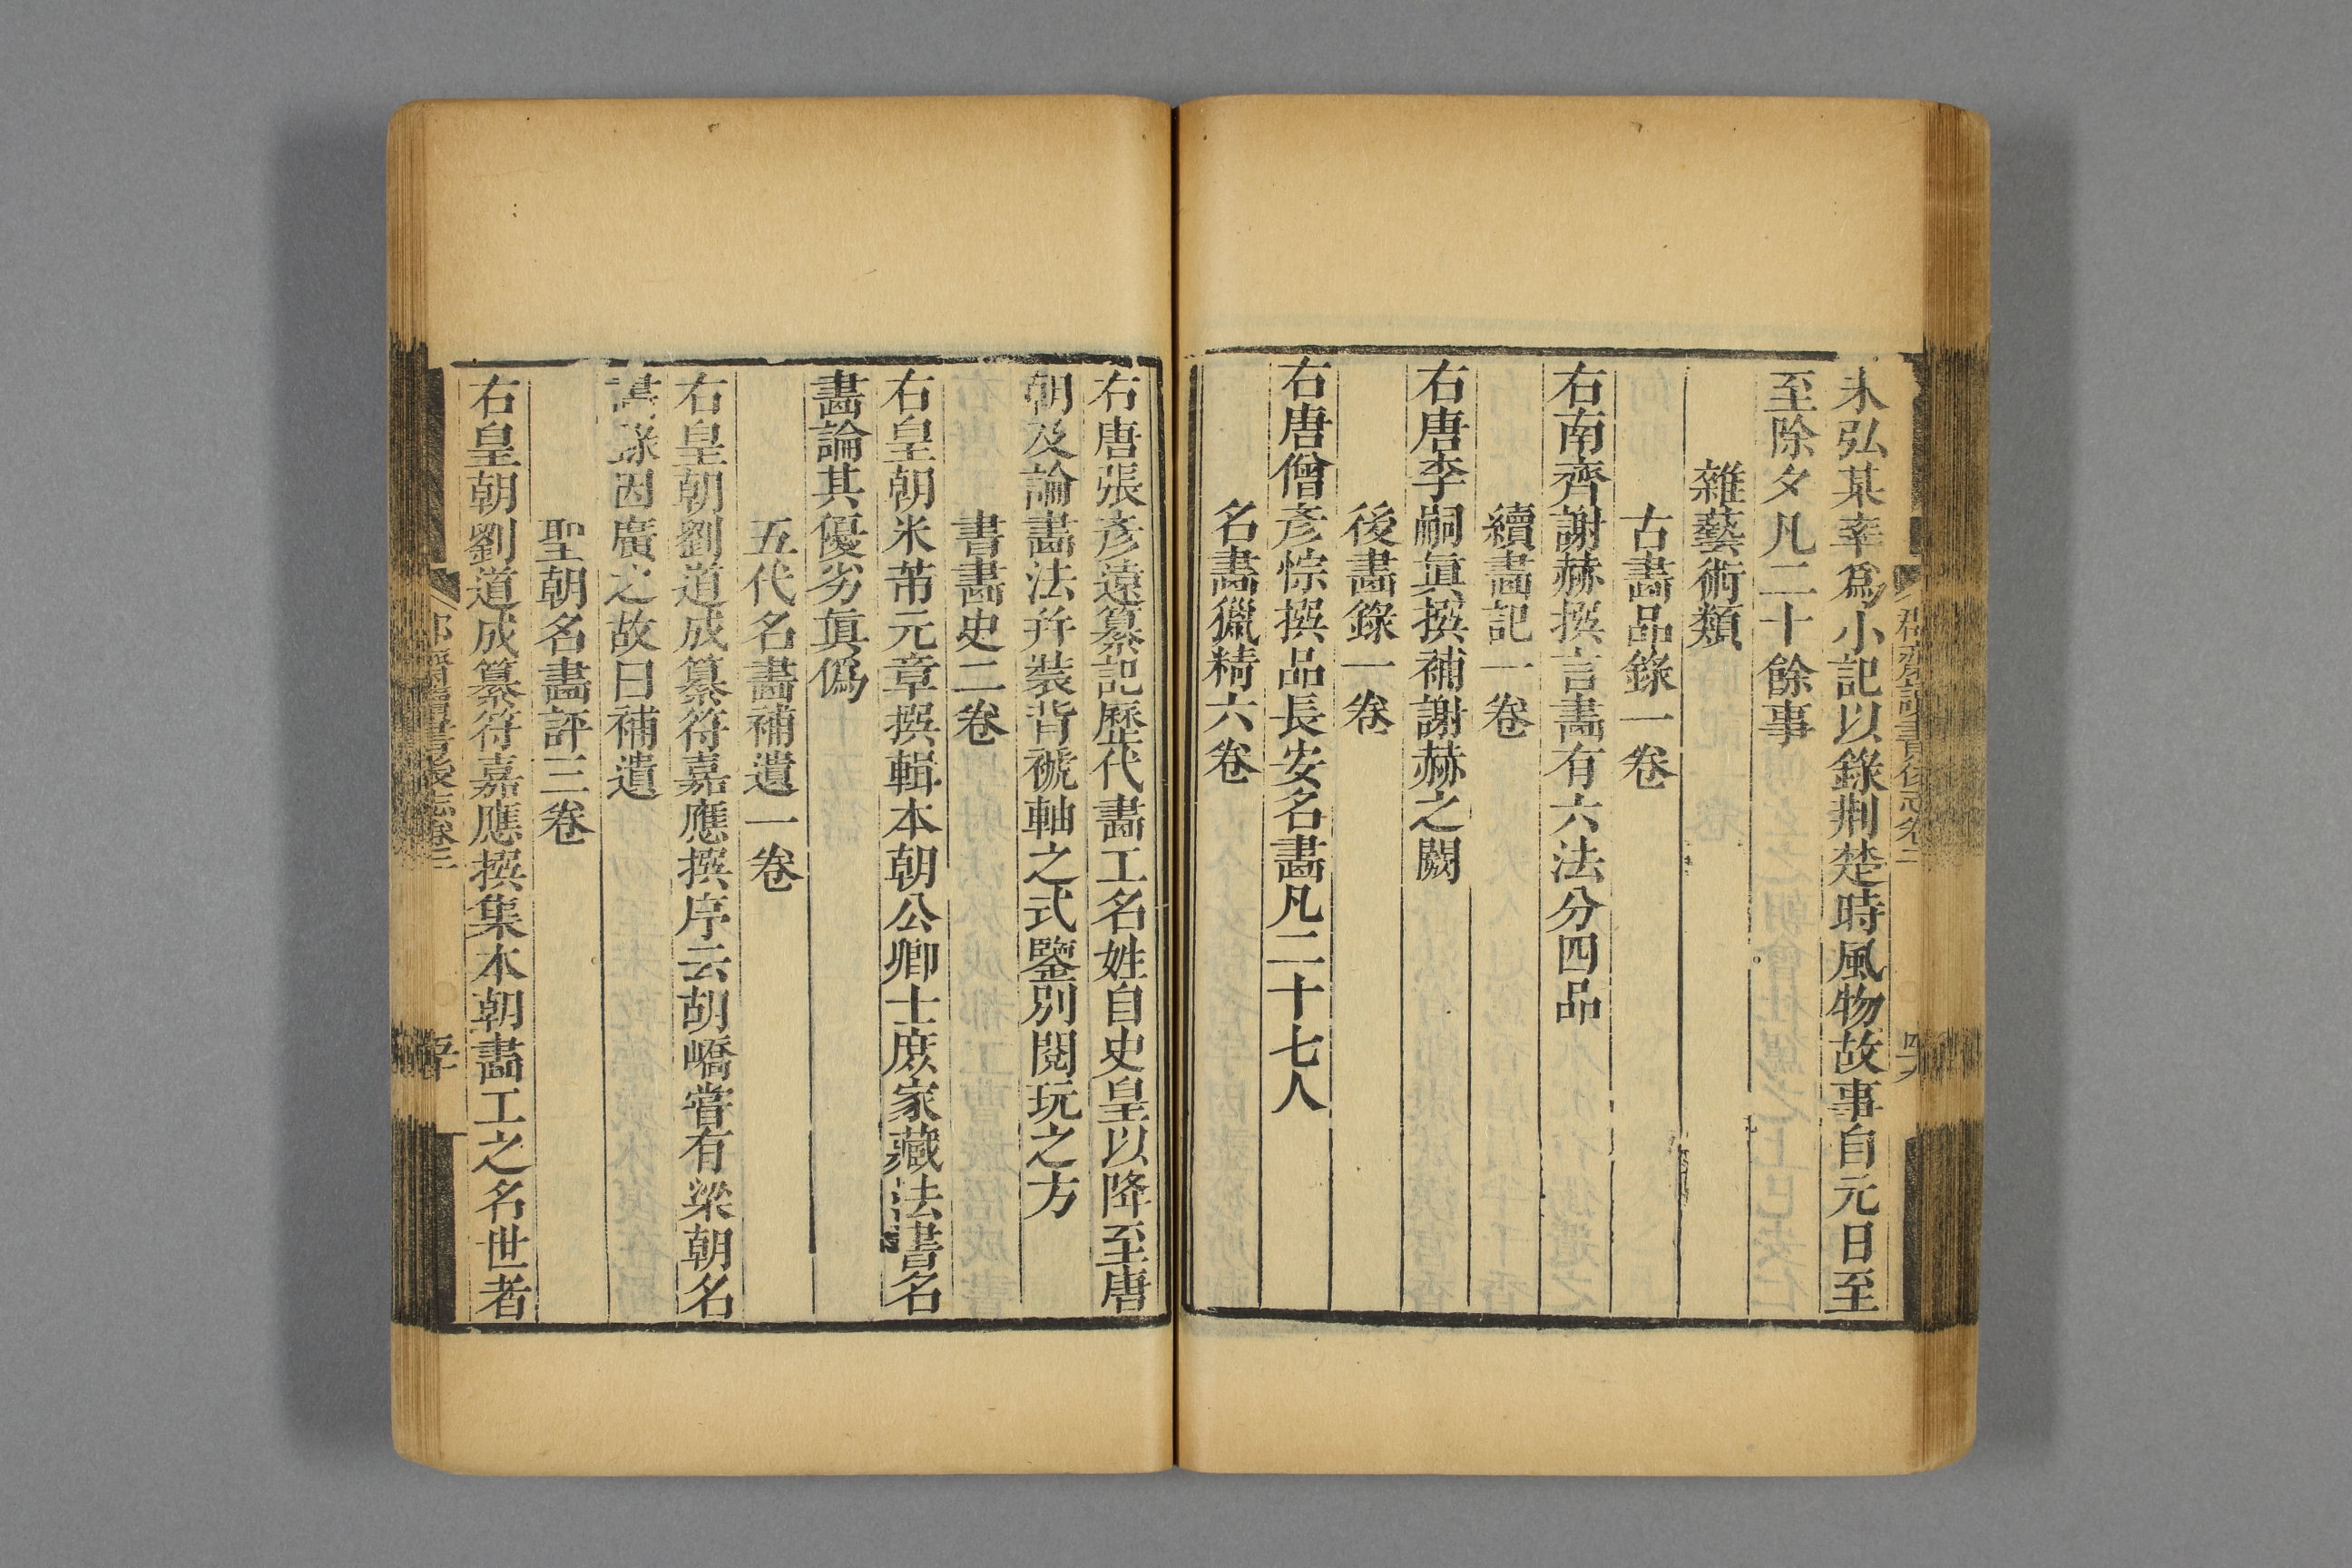 未弘某率爲小記以錄荆楚時風物故事自元日至
至除夕凡二十餘事
雜藝術類
古畵品錄一卷
右南齊謝赫撰言畵有六法分四品
續畵記一卷
右唐李嗣眞撰補謝赫之闕
後畵錄一卷
右唐僧彥悰撰品長安名畵凡二十七人
名畵獵精六卷
右唐張彥遠纂記歷代畵工名姓自史皇以降至唐
朝及論畵法幷裝背褫軸之式鑒別閱玩之方
書畵史二卷
右皇朝米芾元章撰輯本朝公卿士庶家藏法書名
畵論其優劣眞僞
五代名畵補遺一卷
右皇朝劉道成纂符嘉應撰序云胡嶠嘗有梁朝名
畵錄因廣之故曰補遺
聖朝名畵評三卷
右皇朝劉道成纂符嘉應撰集本朝畵工之名世者